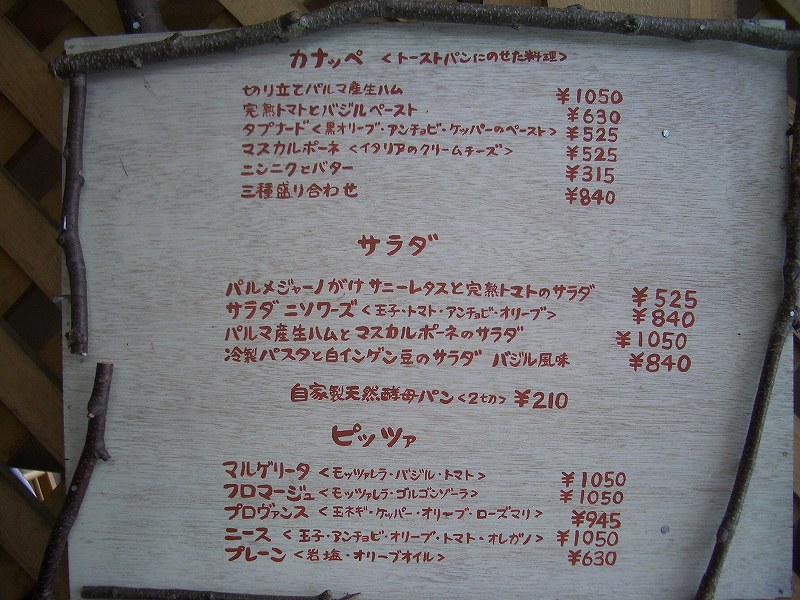 カナッペ <トーストパンにのせた料理>
切り立てパルマ産生ハム ¥1050
完熟トマトとバジルペースト ¥630
タプナード<黒オリーブ・アンチョビ・ケッパーのペースト> ¥525
マスカルポーネ <イタリアのクリームチーズ> ¥525
ニンニクとバター ¥315
三種盛り合わせ ¥840
サラダ
パルメジャーノがけ サニーレタスと完熟トマトのサラダ ¥525
サラダ ニソワーズ <玉子・トマト・アンチョビ・オリーブ> ¥840
パルマ産生ハムとマスカルポーネのサラダ ¥1050
冷製パスタと白インゲン豆のサラダ バジル風味 ¥840
自家製天然酵母パン<2切> ¥210
ピッツァ
マルゲリータ <モッツァレラ・バジル・トマト> ¥1050
フロマージュ <モッツァレラ・ゴルゴンゾーラ> ¥1050
プロヴァンス <玉ネギ・ケッパー・オリーブ・ローズマリ> ¥945
ニース <玉子・アンチョビ・オリーブ・トマト・オレガノ> ¥1050
プレーン <岩塩・オリーブオイル> ¥630